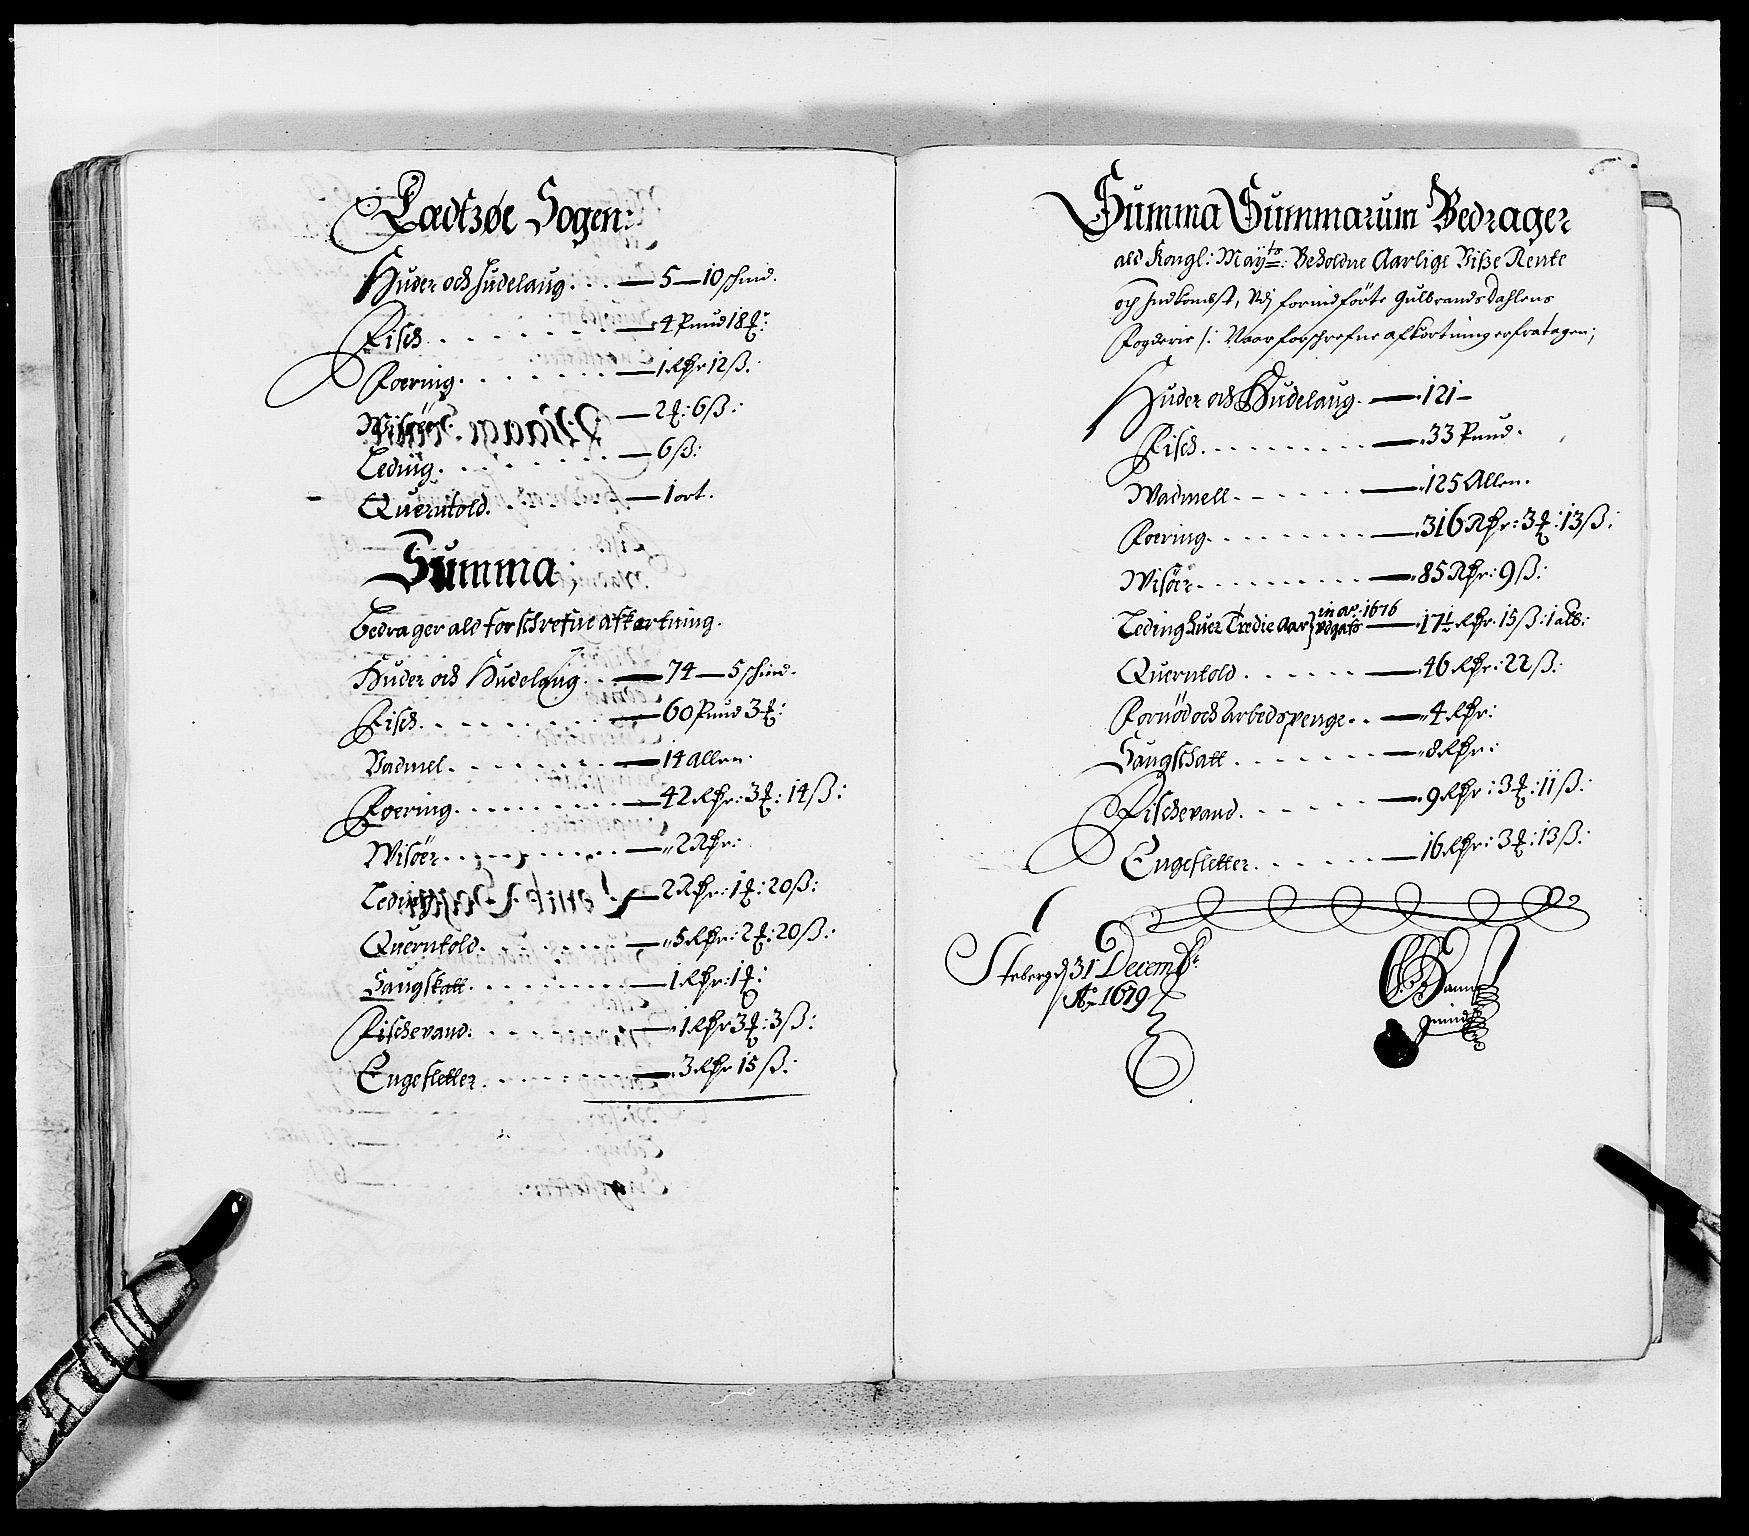 Ladtzøe Sogen:
Huder och Hudelaug. . . . — 5 — 10 schind.
Fisch. . . . . . — 4 Pund 18 ℔:
Foering. . . . . . — 1 Rhr 12 ß:
Wisöer — 2 ℔: 6 ß:
Leding. . . . . . — 6 ß:
Querntold. . . . — 1 ort.
Summa;
Bedrager ald forschrefne afkortning.
Huder och Hudelaug. . . — 74 — 5 schind.
Fisch. . . . . . . — 60 Pund 3 ℔:
Vadmel. . . . . . . — 14 Allen.
Foering. . . . . . . . — 42 Rhr: 3 ℔: 14 ß:
Wisöer. . . . . . . . — 2 Rhr:
Leding — 2 Rhr: 1 ℔: 20 ß:
Querntold. . . . . . — 5 Rhr: 2 ℔: 20 ß:
Laugskatt. . . . . . . — 1 Rhr: 1 ℔:
Fischevand. . . . . . — 1 Rhr 3 ℔: 3 ß:
Engesletter. . . . . . . — 3 Rhr 15 ß:
Summa Summarum Bedrager
ald Kongl: Mayts: Beholdne Aarlige Viße Rente
och Indkombst, Udj forindförte Gulbrandsdahlens
Fogderie /: Naar forschrefne afkortning erfratagen;
Huder och Hudelaug. — 121 —
Fisch. . . . . . . . . — 33 Pund.
Wadmell. . . . . . — 125 Allen.
Foering. . . . . . . . — 316 Rhr: 3 ℔: 13 ß:
Wisöer. . . . . . . . . — 85 Rhr: 9 ß:
Leding huer Tredie Aar} in ao: 1676 udgafs — 171 Rhr. 15 ß: 1 alb:
Querntold. . . . . . — 46 Rhr: 22 ß:
Fornöd och Arbedspenge. . — 4 Rhr:
Laugschatt. . . . . . — 8 Rhr:
Fischevand. . . . . . — 9 Rhr: 3 ℔: 11 ß:
Engesletter. . . . . . — 16 Rhr: 3 ℔: 13 ß:
Steberg d 31 Decembr:
Ao 1679